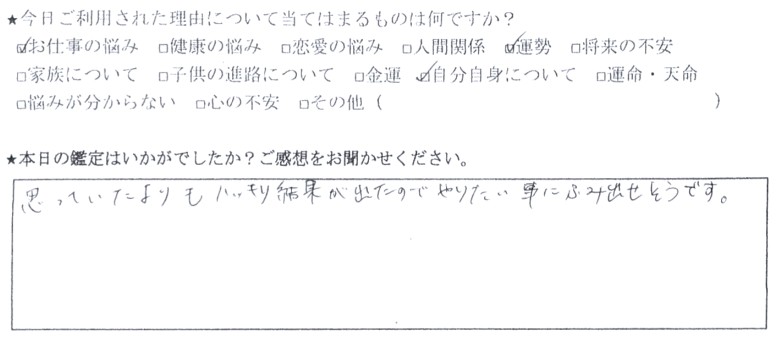 ★今日ご利用された理由について当てはまるものは何ですか？
☑お仕事の悩み □健康の悩み □恋愛の悩み □人間関係 ☑運勢 □将来の不安
□家族について □子供の進路について □金運 ☑自分自身について □運命・天命
□悩みが分からない □心の不安 □その他（　　　）
★本日の鑑定はいかがでしたか？ご感想をお聞かせください。
思っていたよりもハッキリ結果が出たのでやりたい事にふみ出せそうです。